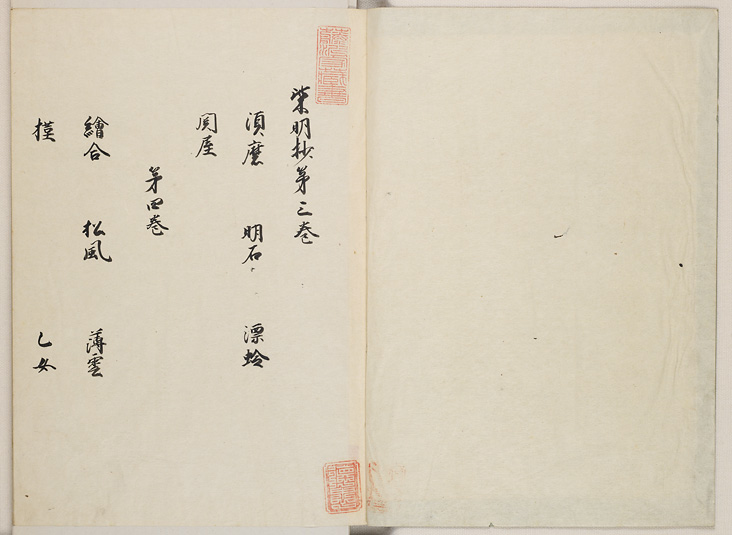 紫明抄第三巻
須磨 明石 澪蛉
関屋
第四巻
繪合 松風 薄雲
槿 乙女